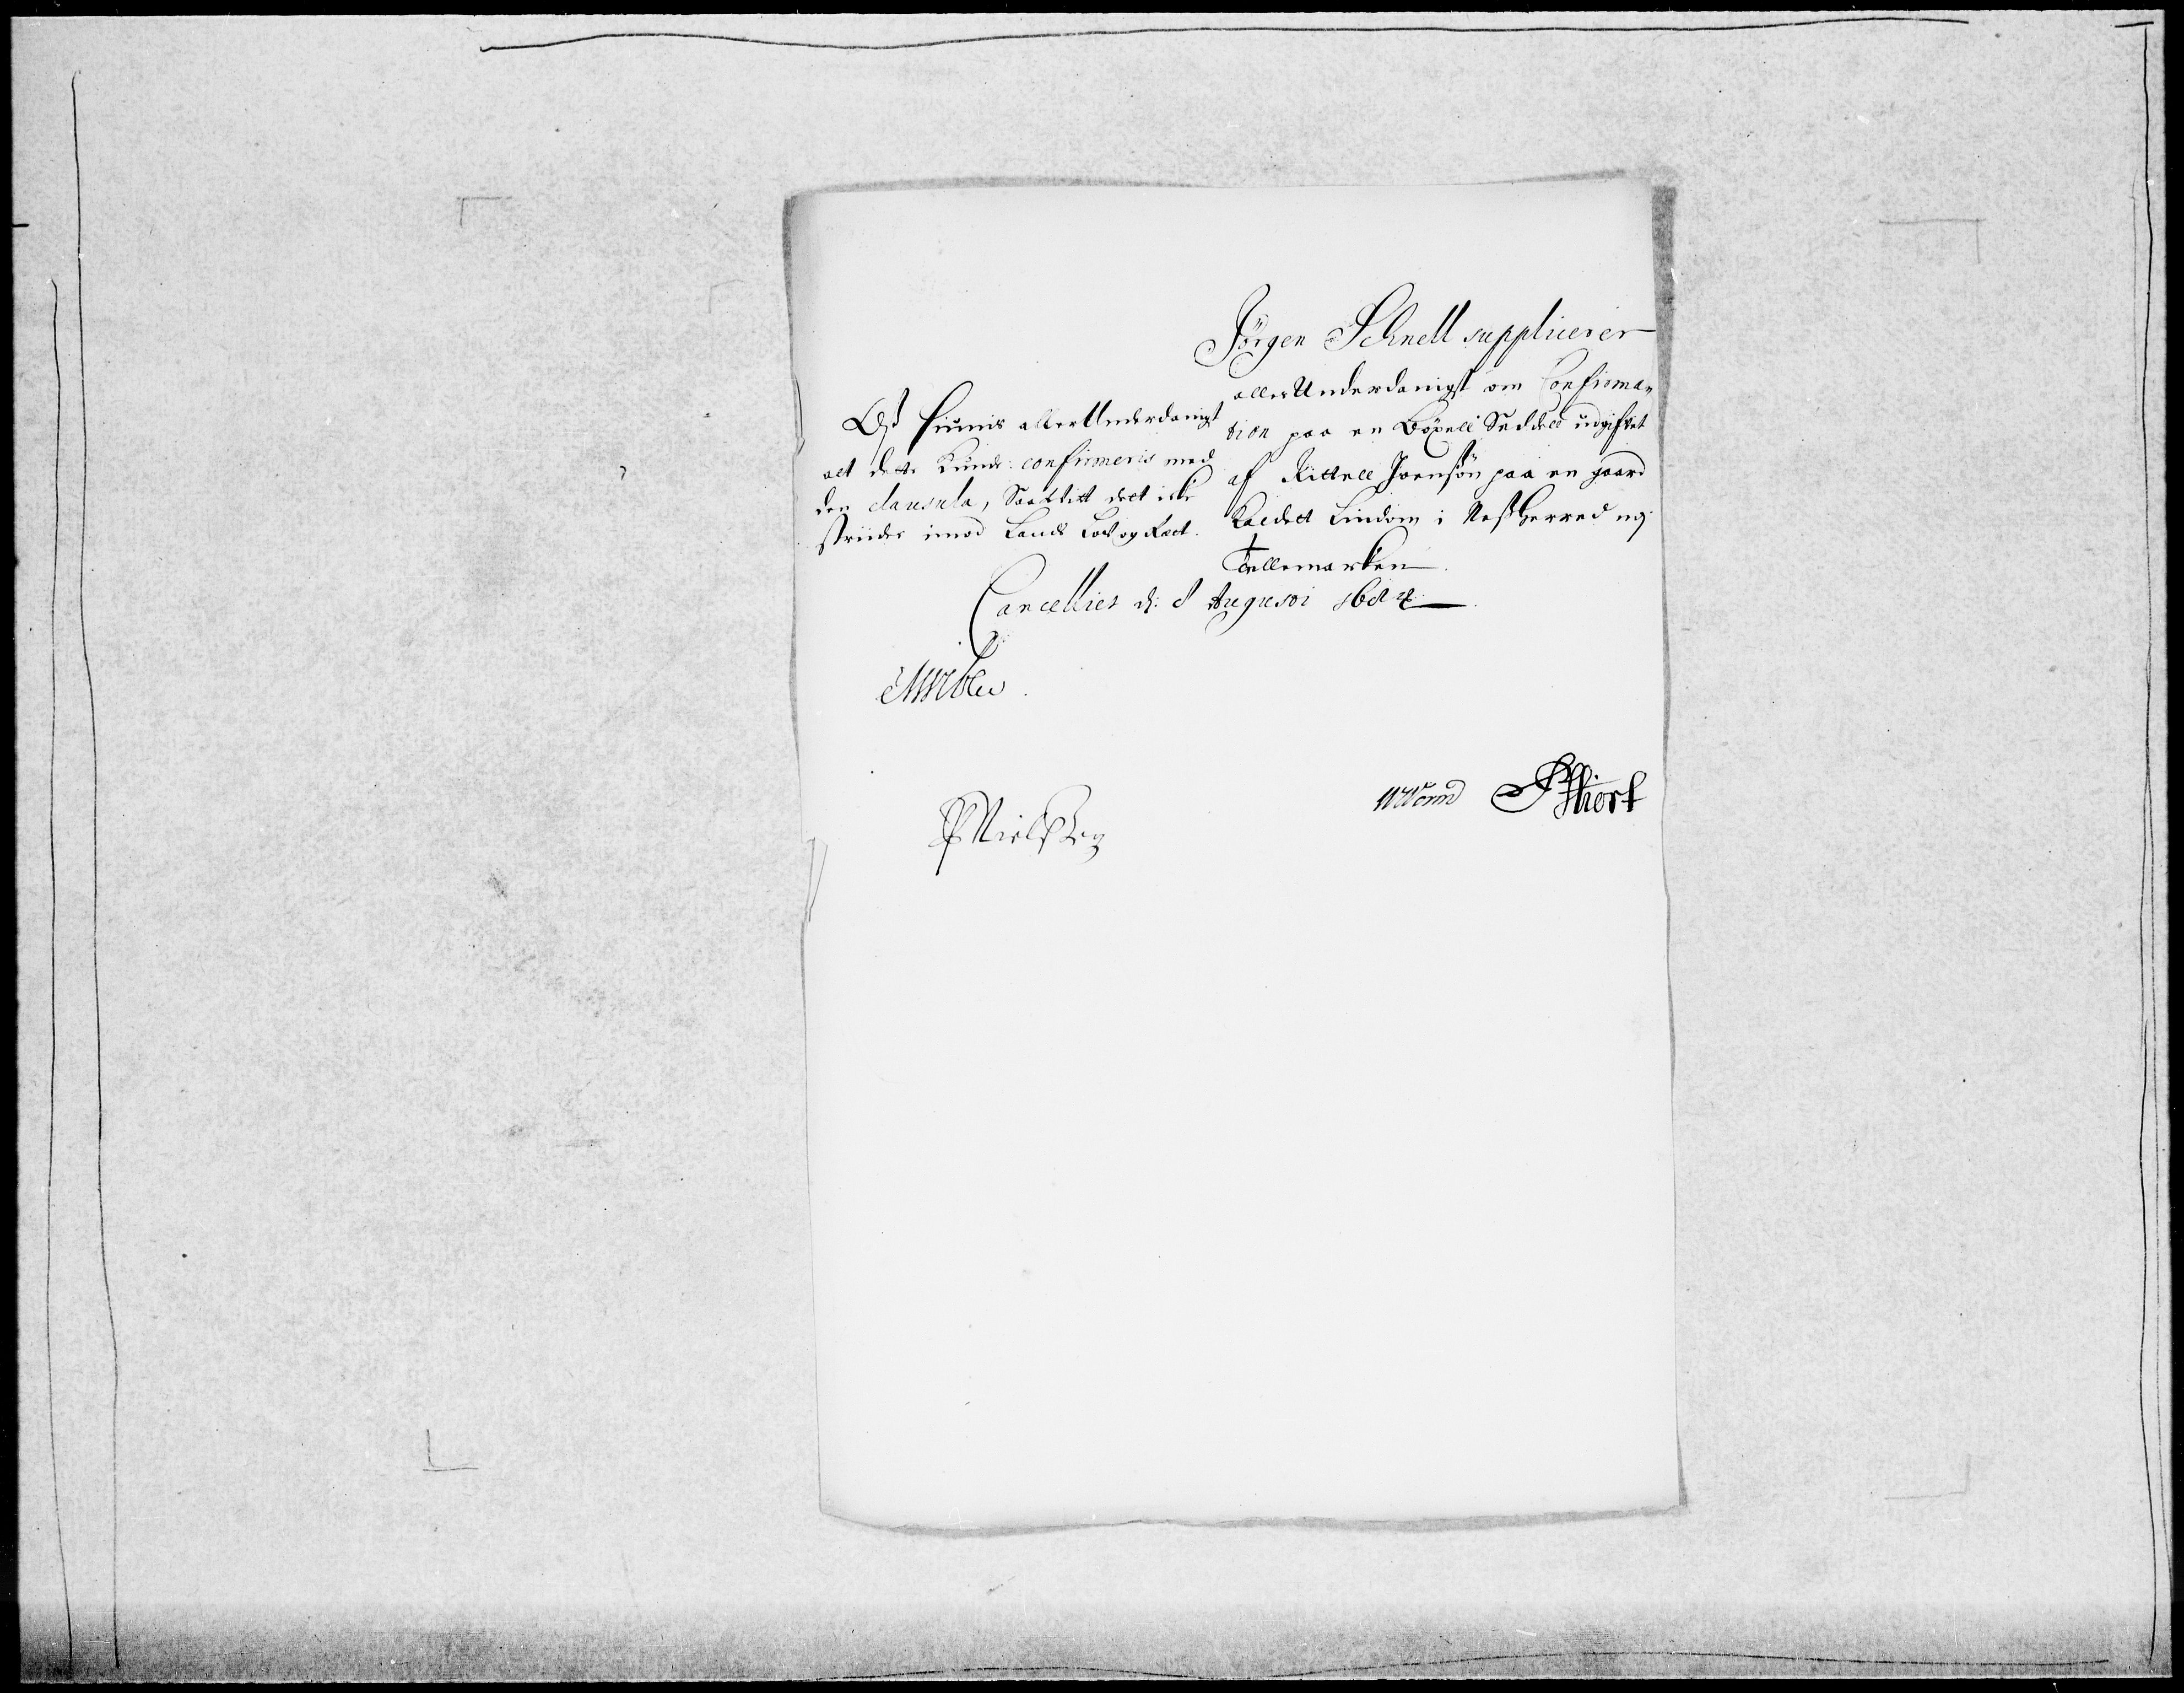 Jörgen Schnell supplicerer
allerUnderdanigst om Confirma-
tion paa en Böxell Seddell udgifvet
af Kittell Joensön paa en gaard
Kaldett Lindom i Nessherred og
Tellemarken
Est fiunis allerUnderdanigt
att dette Kunde confirmeris med
den clausula, Saavitt dett icke
striider imod Lands Low og Ræt.
Cancelliet d: 8 Augusti 1684
MWibe
PNielssen
WWorm
Hiort